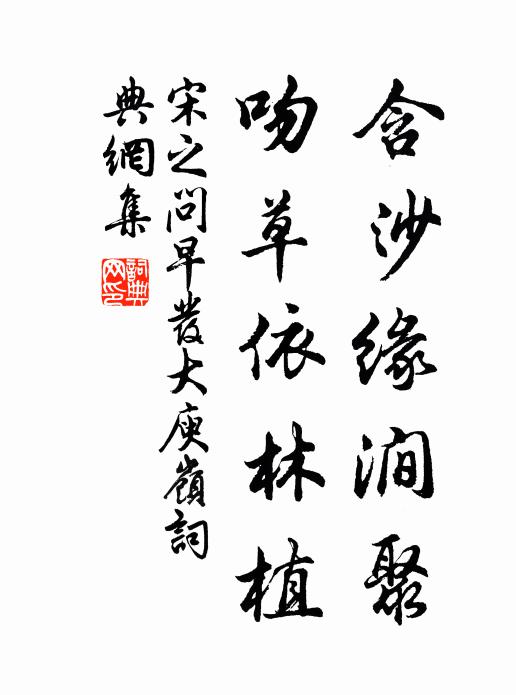 含沙緣澗聚
吻草依林植
宋之問早發大庾嶺詞
典網集
詞典網印